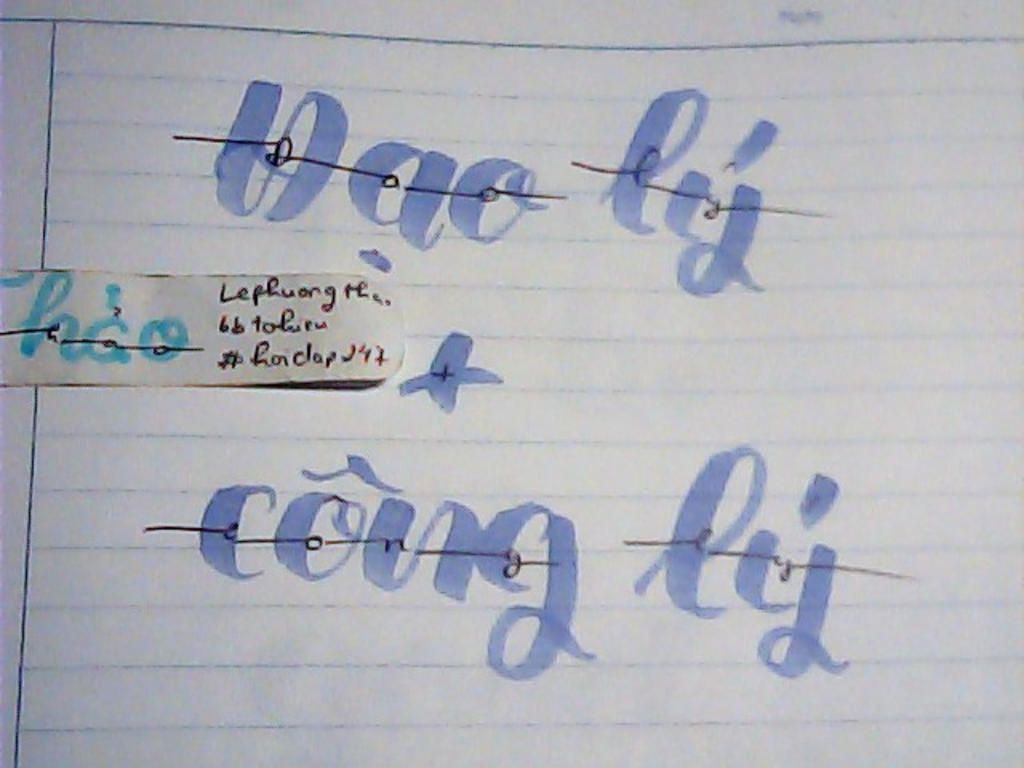 Đạo lý
Thảo
Lephuong Thả
6b tohieu
#hoidap247
+
công lý